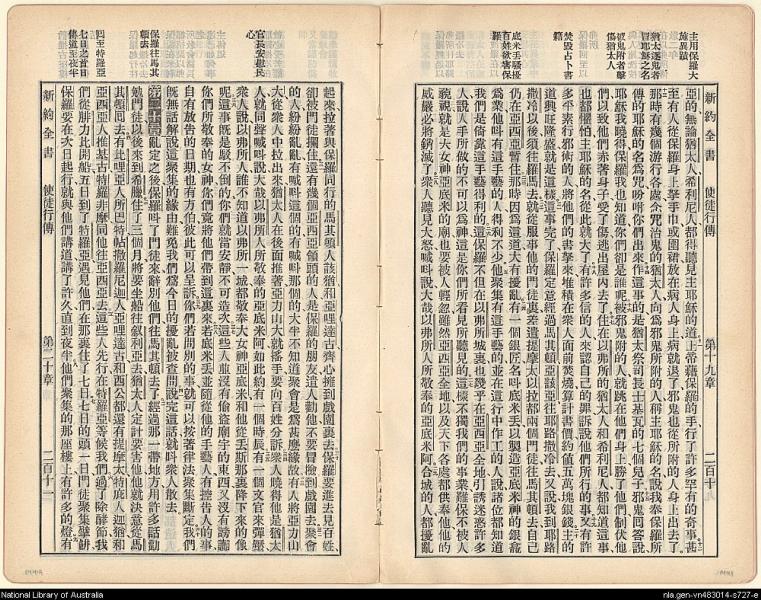 主用保羅大
施異蹟
猶太逐鬼者
冒耶穌之名
被鬼附者擊
傷猶太人
焚毀占卜書
籍
底米丟騷擾
百姓欲害保
羅
新約全書 使徒行傳 第十九章 二百十
亞的無論猶太人希利尼人都得聽見主耶穌的道上帝藉保羅的手行了許多罕有的奇事甚
至有人從保羅身上拏手巾或圍裙放在病人身上病就退了邪鬼也從所附的人身上出去了
那時有幾個游行各處念咒治鬼的猶太人向爲邪鬼所附的人稱主耶穌的名說我奉保羅所
傳的耶穌的名爲咒吩咐你們出來作這事的是猶太祭司長士基瓦的七個兒子邪鬼回答說
耶穌我曉得保羅我也知道你們卻是誰呢被邪鬼附的人就跳在他們身上勝了他們制伏他
們以致他們赤著身子受了傷逃出屋內去了住在以弗所的猶太人和希利尼人都知道這事
也都懼怕主耶穌的名從此就大了有許多信的人來認自己的罪訴說他們所行的事又有許
多平素行邪術的人將他們的書拏來堆積在衆人面前焚燒算計書價約値五萬塊銀錢主的
道興旺隆盛就是這樣這事完了保羅定意經過馬其頓亞該亞往耶路撒冷去又說我到耶路
撒冷以後須往羅馬去就從服事他的門徒裏差遣提摩太以拉都兩個門徒往馬其頓去自己
仍在亞西亞暫住那時因爲這道大有擾亂有一個銀匠名叫底米丟以製造亞底米神的銀龕
爲業他叫有這手藝的人得利不少他聚集有這手藝的並在這行中作工的人說諸位都知道
我們是倚靠這手藝得利的這保羅不但在以弗所城裏也幾乎在亞西亞全地引誘迷惑許多
人說人手所做的不可以爲神這是你們所看見所聽見的這樣不獨我們的事業難保不被人
藐視就是大女神亞底米的廟也要被人輕忽雖然亞西亞全地以及天下各處都供奉他他的
威嚴必將銷滅了衆人聽見大怒喊叫說大哉以弗所人所敬奉的亞底米阿合城的人都擾亂
官長安慰民
心
保羅往馬其
頓去
回至特羅亞
七日之首日
傳道至夜半
起來拉著與保羅同行的馬其頓人該猶和亞哩達古齊心擁到戲園裏去保羅要進去見百姓
卻被門徒攔住還有幾個亞西亞領頭的人是保羅的朋友這人勸他不要冒險到戲園去聚會
的人紛紛亂亂有喊叫這個的有喊叫那個的大半不知道聚會是爲甚麽緣故有人將亞力山
大從衆人中拉出來猶太人在後面推著亞力山大就搖手要向百姓分訴衆人曉得他是猶太
人就同聲喊叫說大哉以弗所人所敬奉的亞底米阿如此約有一個時辰有一個文官來彈壓
衆人說以弗所人誰不知道以弗所一城都敬奉大女神亞底米和他從丟斯那裏降下來的像
呢這事旣是駁不倒的你們就當安靜不可造次這些人並沒有偷盜廟宇的東西又沒有謗讟
你們所敬奉的女神你們竟將他們帶到這裏來若底米丟並隨從他的手藝人有控告人的事
自有放告的日期也有方伯彼此可以呈訴你們若問別的事就可以按著律法聚集斷定我們
旣無話解說這聚集的緣由難免我們爲今日的擾亂被查問說完這話就叫衆人散去
第二十章亂定之後保羅叫了門徒來辭別他們往馬其頓去了經過那一帶地方用許多話勸
勉門徒以後來到希臘住了三個月將要坐船往敘利亞去猶太人定計要害他他就決意從馬
其頓回去有比哩亞人所巴特帖撒羅尼迦人亞哩達古和西公都還有提摩太特庇人迦猶和
亞西亞人推基古特羅非摩同他往亞西亞去這些人先行在特羅亞等候我們過了除酵節我
們從腓力比開船五日到了特羅亞遇見他們在那裏住了七日七日的頭一日門徒聚集擘餅
保羅要在次日起行就與他們講道講了許久直到夜半他們聚集的那座樓上有許多的燈有
新約全書 使徒行傳 第二十章 二百十一
National Library of Australia
nla.gen-vn483014-s727-e